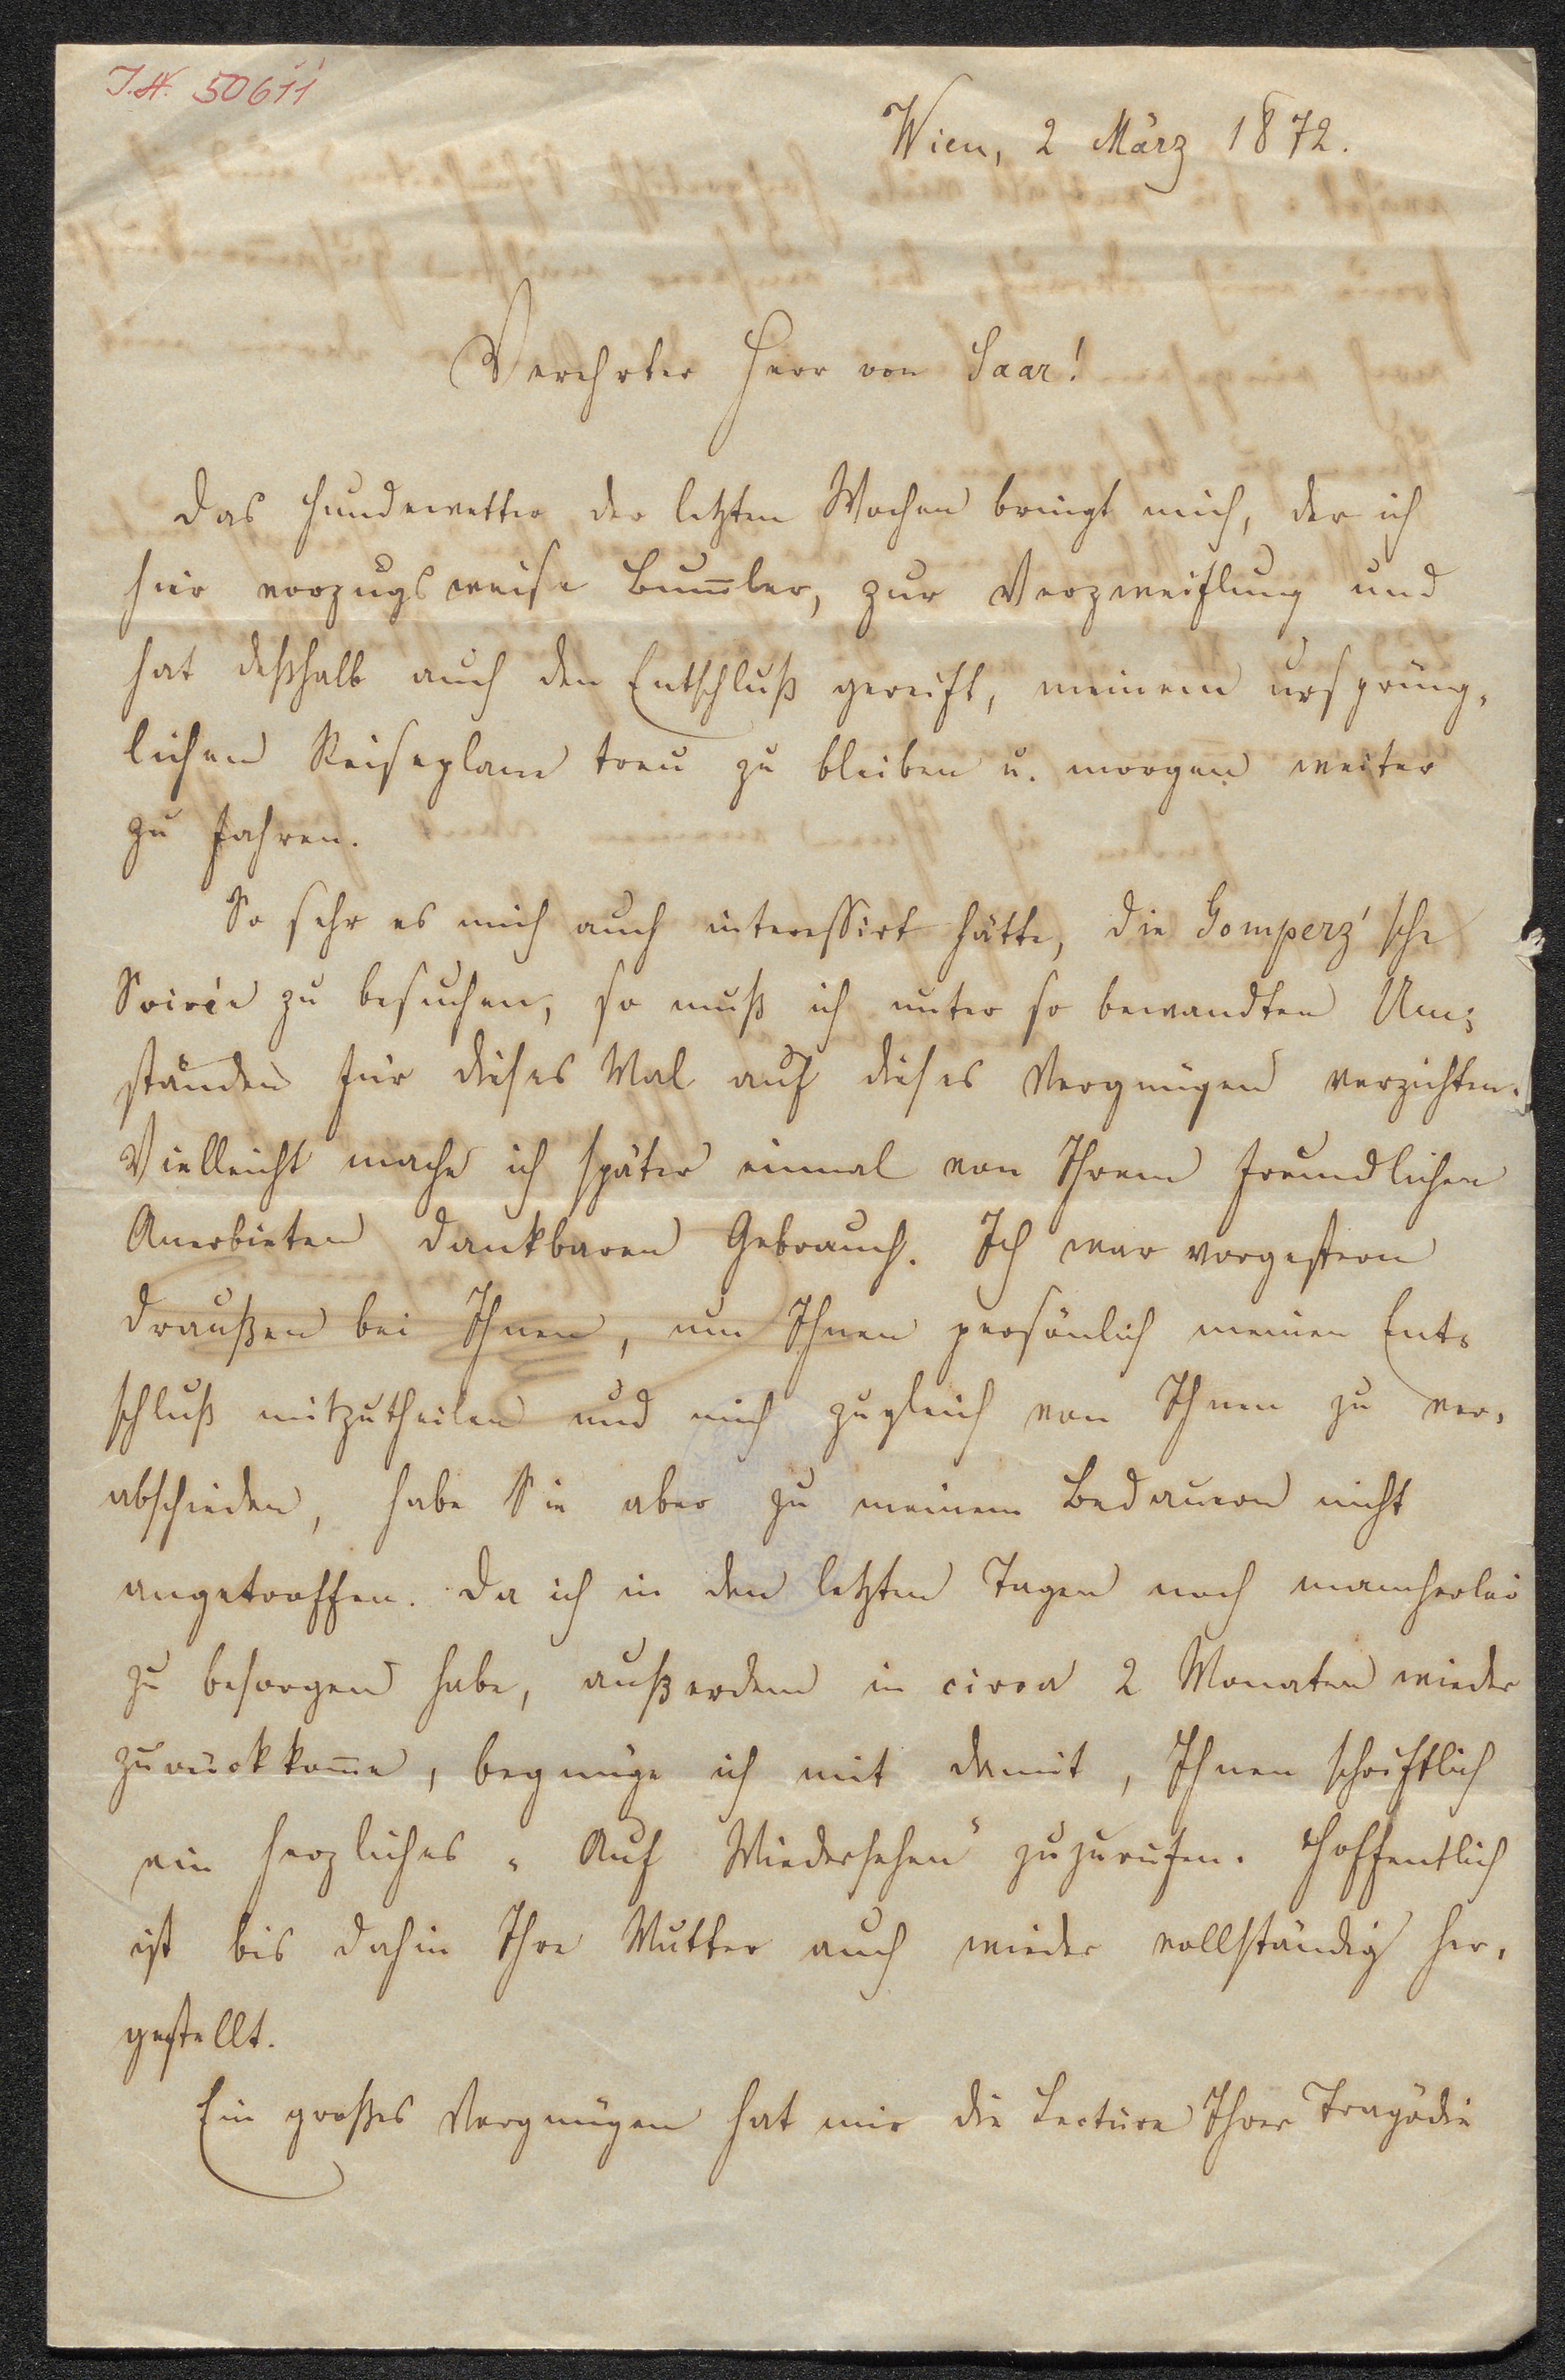 I.N. 50611
Wien, 2 März 1872.
Verehrter Herr von Saar!
Das Hundewetter der letzten Wochen bringt mich, der ich
hier vorzugsweise Bum̅ler, zur Verzweiflung und
hat deßhalb auch den Entschluß gereift, meinem ursprüng-
lichen Reiseplane treu zu bleiben u. morgen weiter
zu fahren.
So sehr es mich auch interessirt hätte, die Gomperz'sche
Soirée zu besuchen, so muß ich unter so bewandten Um-
ständen für dieses Mal auf dieses Vergnügen verzichten.
Vielleicht mache ich später einmal von Ihrem freundlichen
Anerbieten dankbaren Gebrauch. Ich war vorgestern
draußen bei Ihnen, um Ihnen persönlich meinen Ent-
schluß mitzutheilen und mich zugleich von Ihnen zu ver-
abschieden, habe Sie aber zu meinem Bedauern nicht
angetroffen. Da ich in den letzten Tagen noch mancherlei
zu besorgen habe, außerdem in circa 2 Monaten wieder
zurückkom̅e, begnüge ich mit damit, Ihnen schriftlich
ein herzliches „Auf Wiedersehen“ zuzurufen. Hoffentlich
ist bis dahin Ihre Mutter auch wieder vollständig her-
gestellt.
Ein großes Vergnügen hat mir die Lectüre Ihrer Tragödie